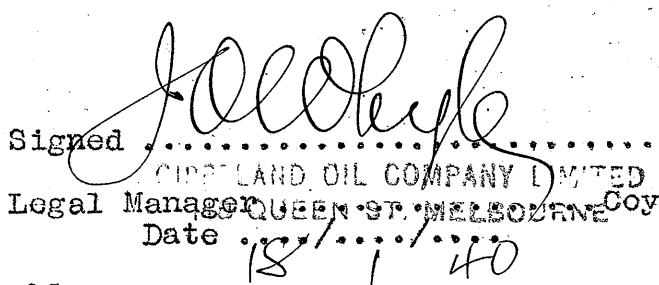 Signed
LAND OIL COMPANY LIMITED
Legal Manager QUEEN ST. MELBOURNE Coy
Date 18/1/40